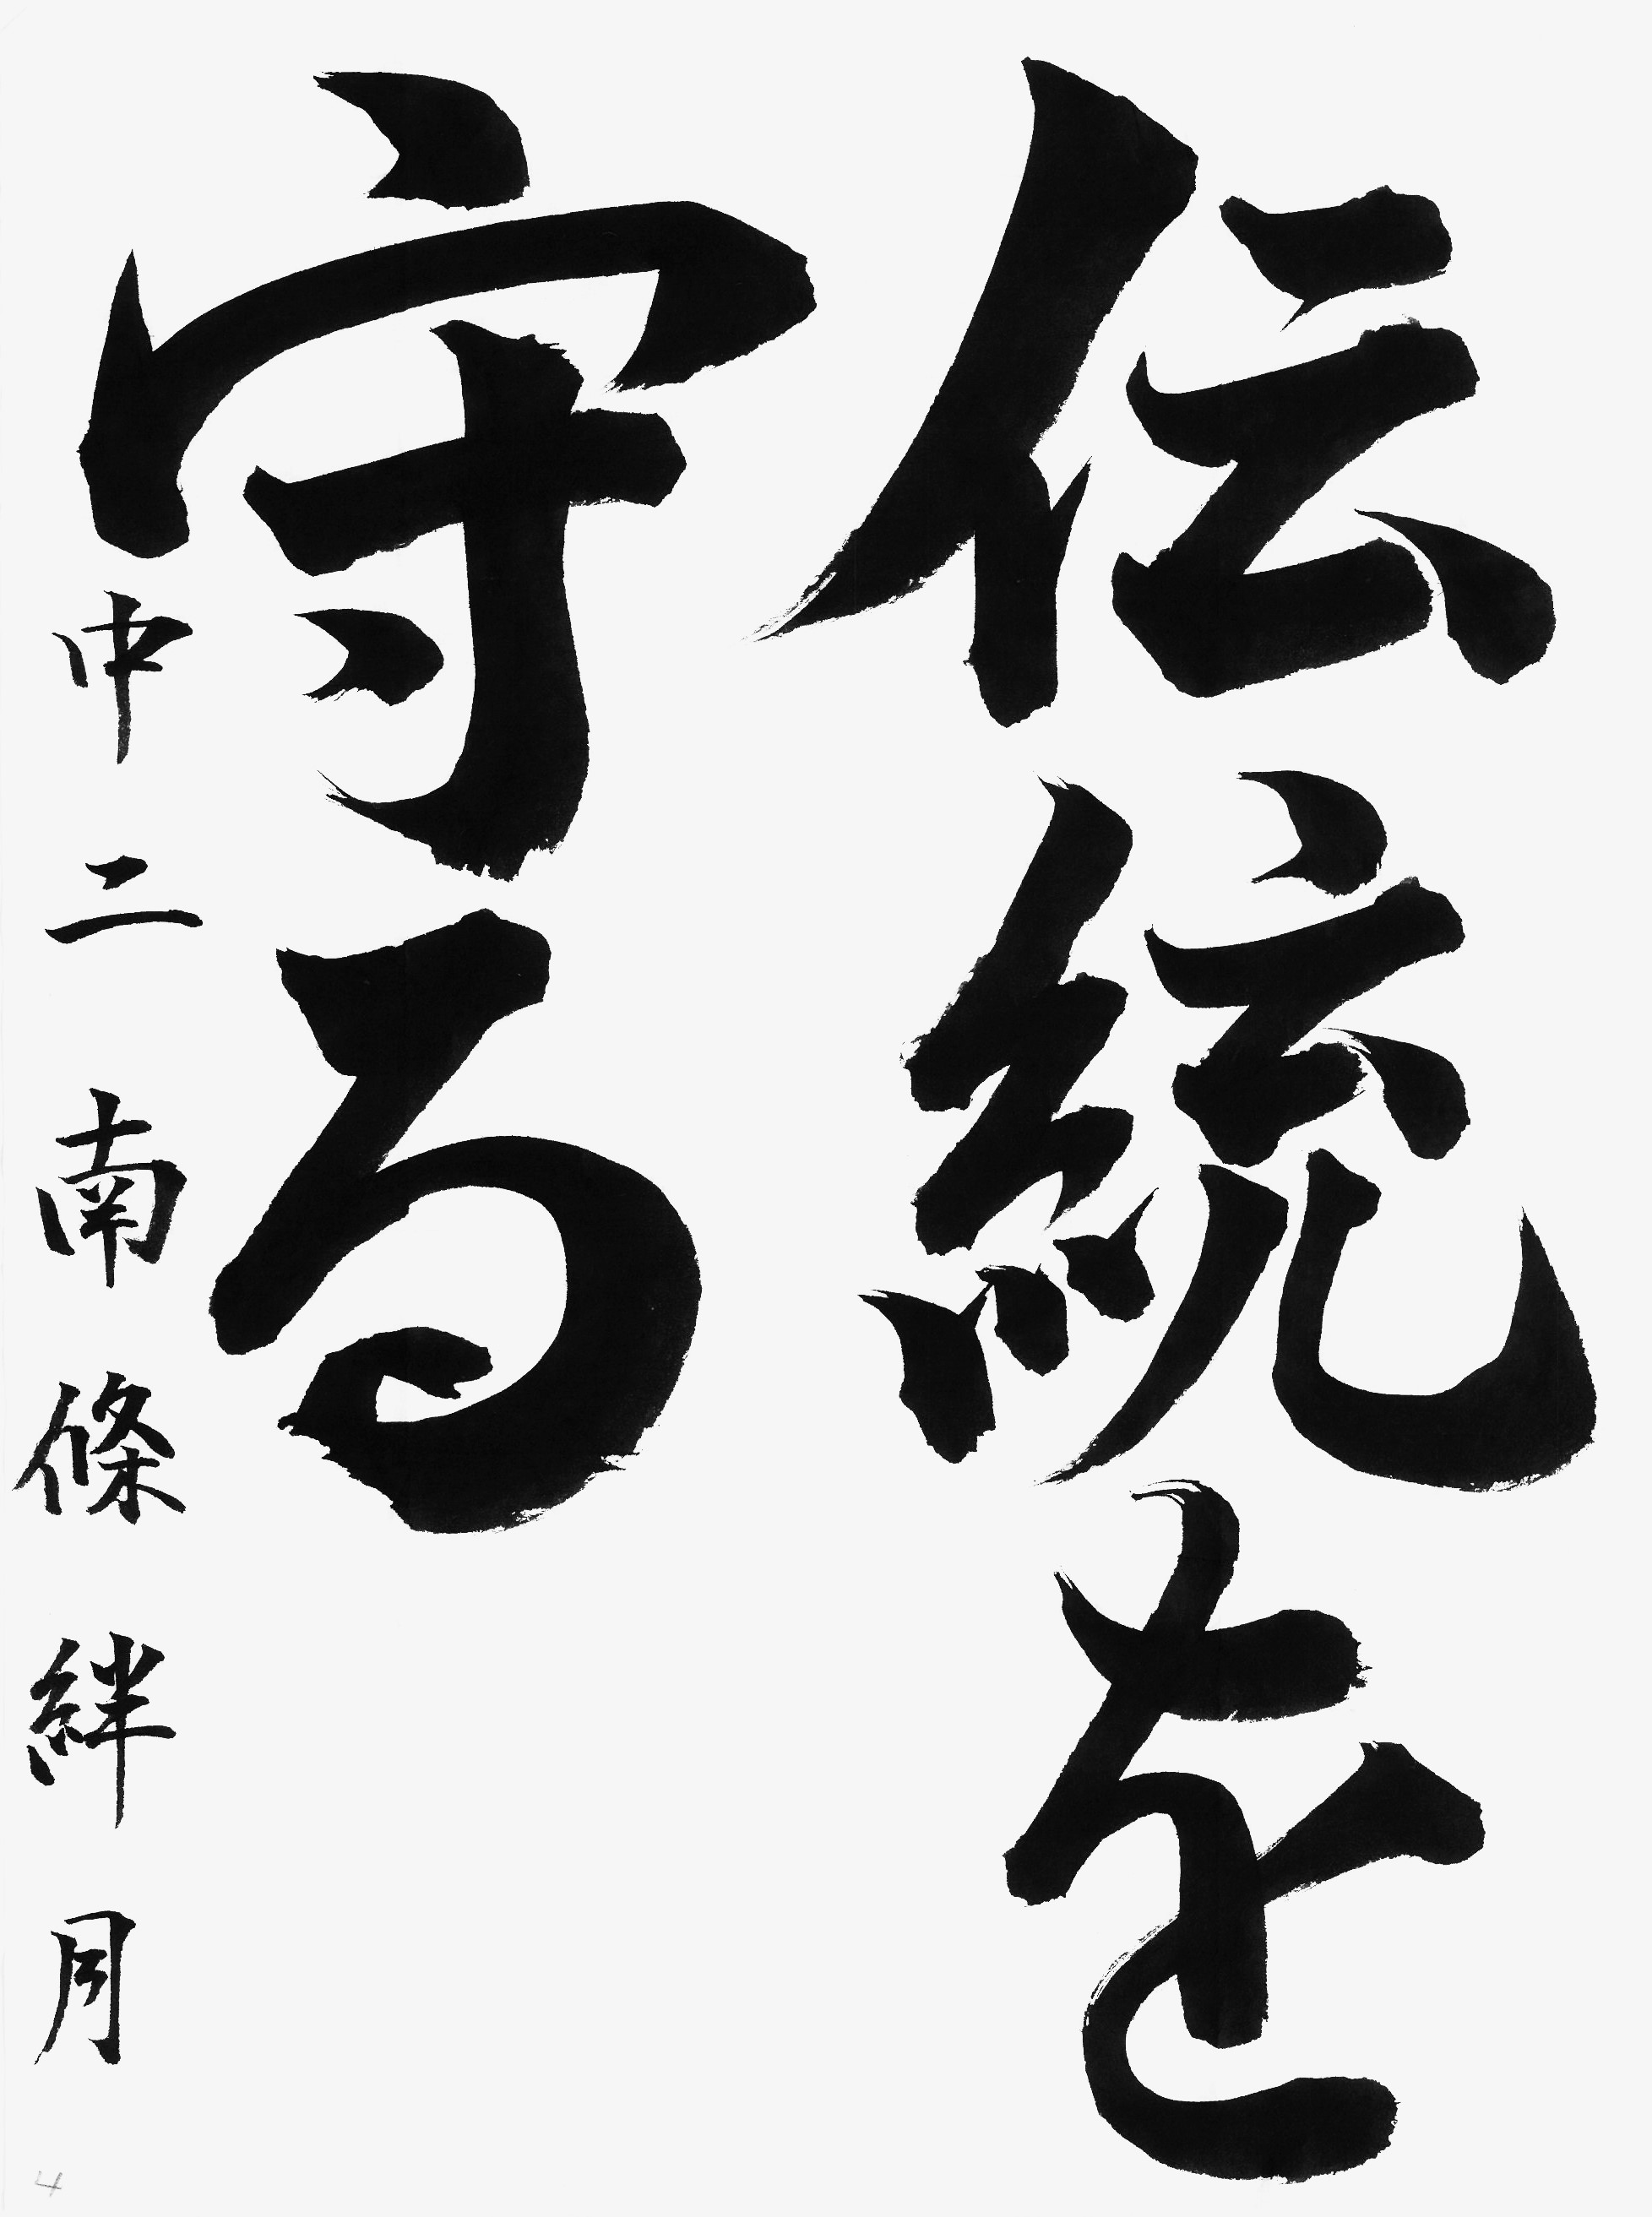 伝統を
守る
中二 南條絆月
4